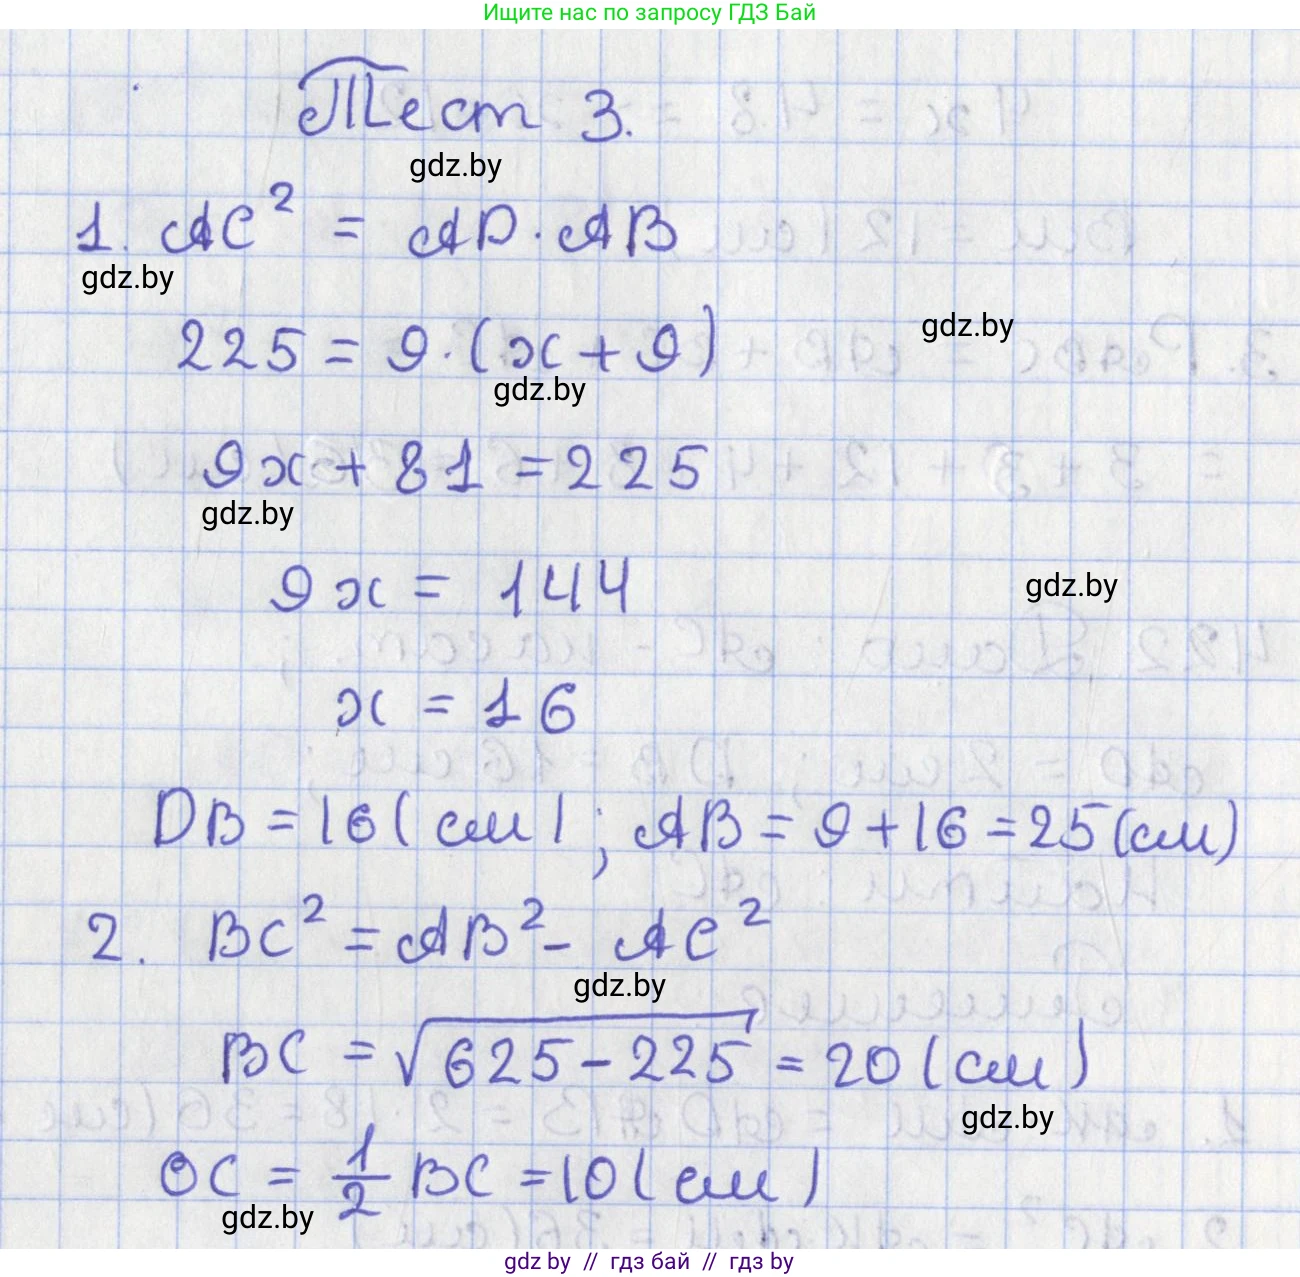 Ищите нас по запросу ГДЗ Бай
Тест 3.
gdz.by
1. AC² = AD · AB
gdz.by
225 = 9 · (x + 9)
gdz.by
gdz.by
9x + 81 = 225
gdz.by
9x = 144
gdz.by
x = 16
DB = 16 (см) ; AB = 9 + 16 = 25 (см)
2. BC² = AB² - AC²
gdz.by
BC = √625 - 225 = 20 (см)
gdz.by
OC = 1/2 BC = 10 (см)
gdz.by
gdz by // гдз бай // гдз by